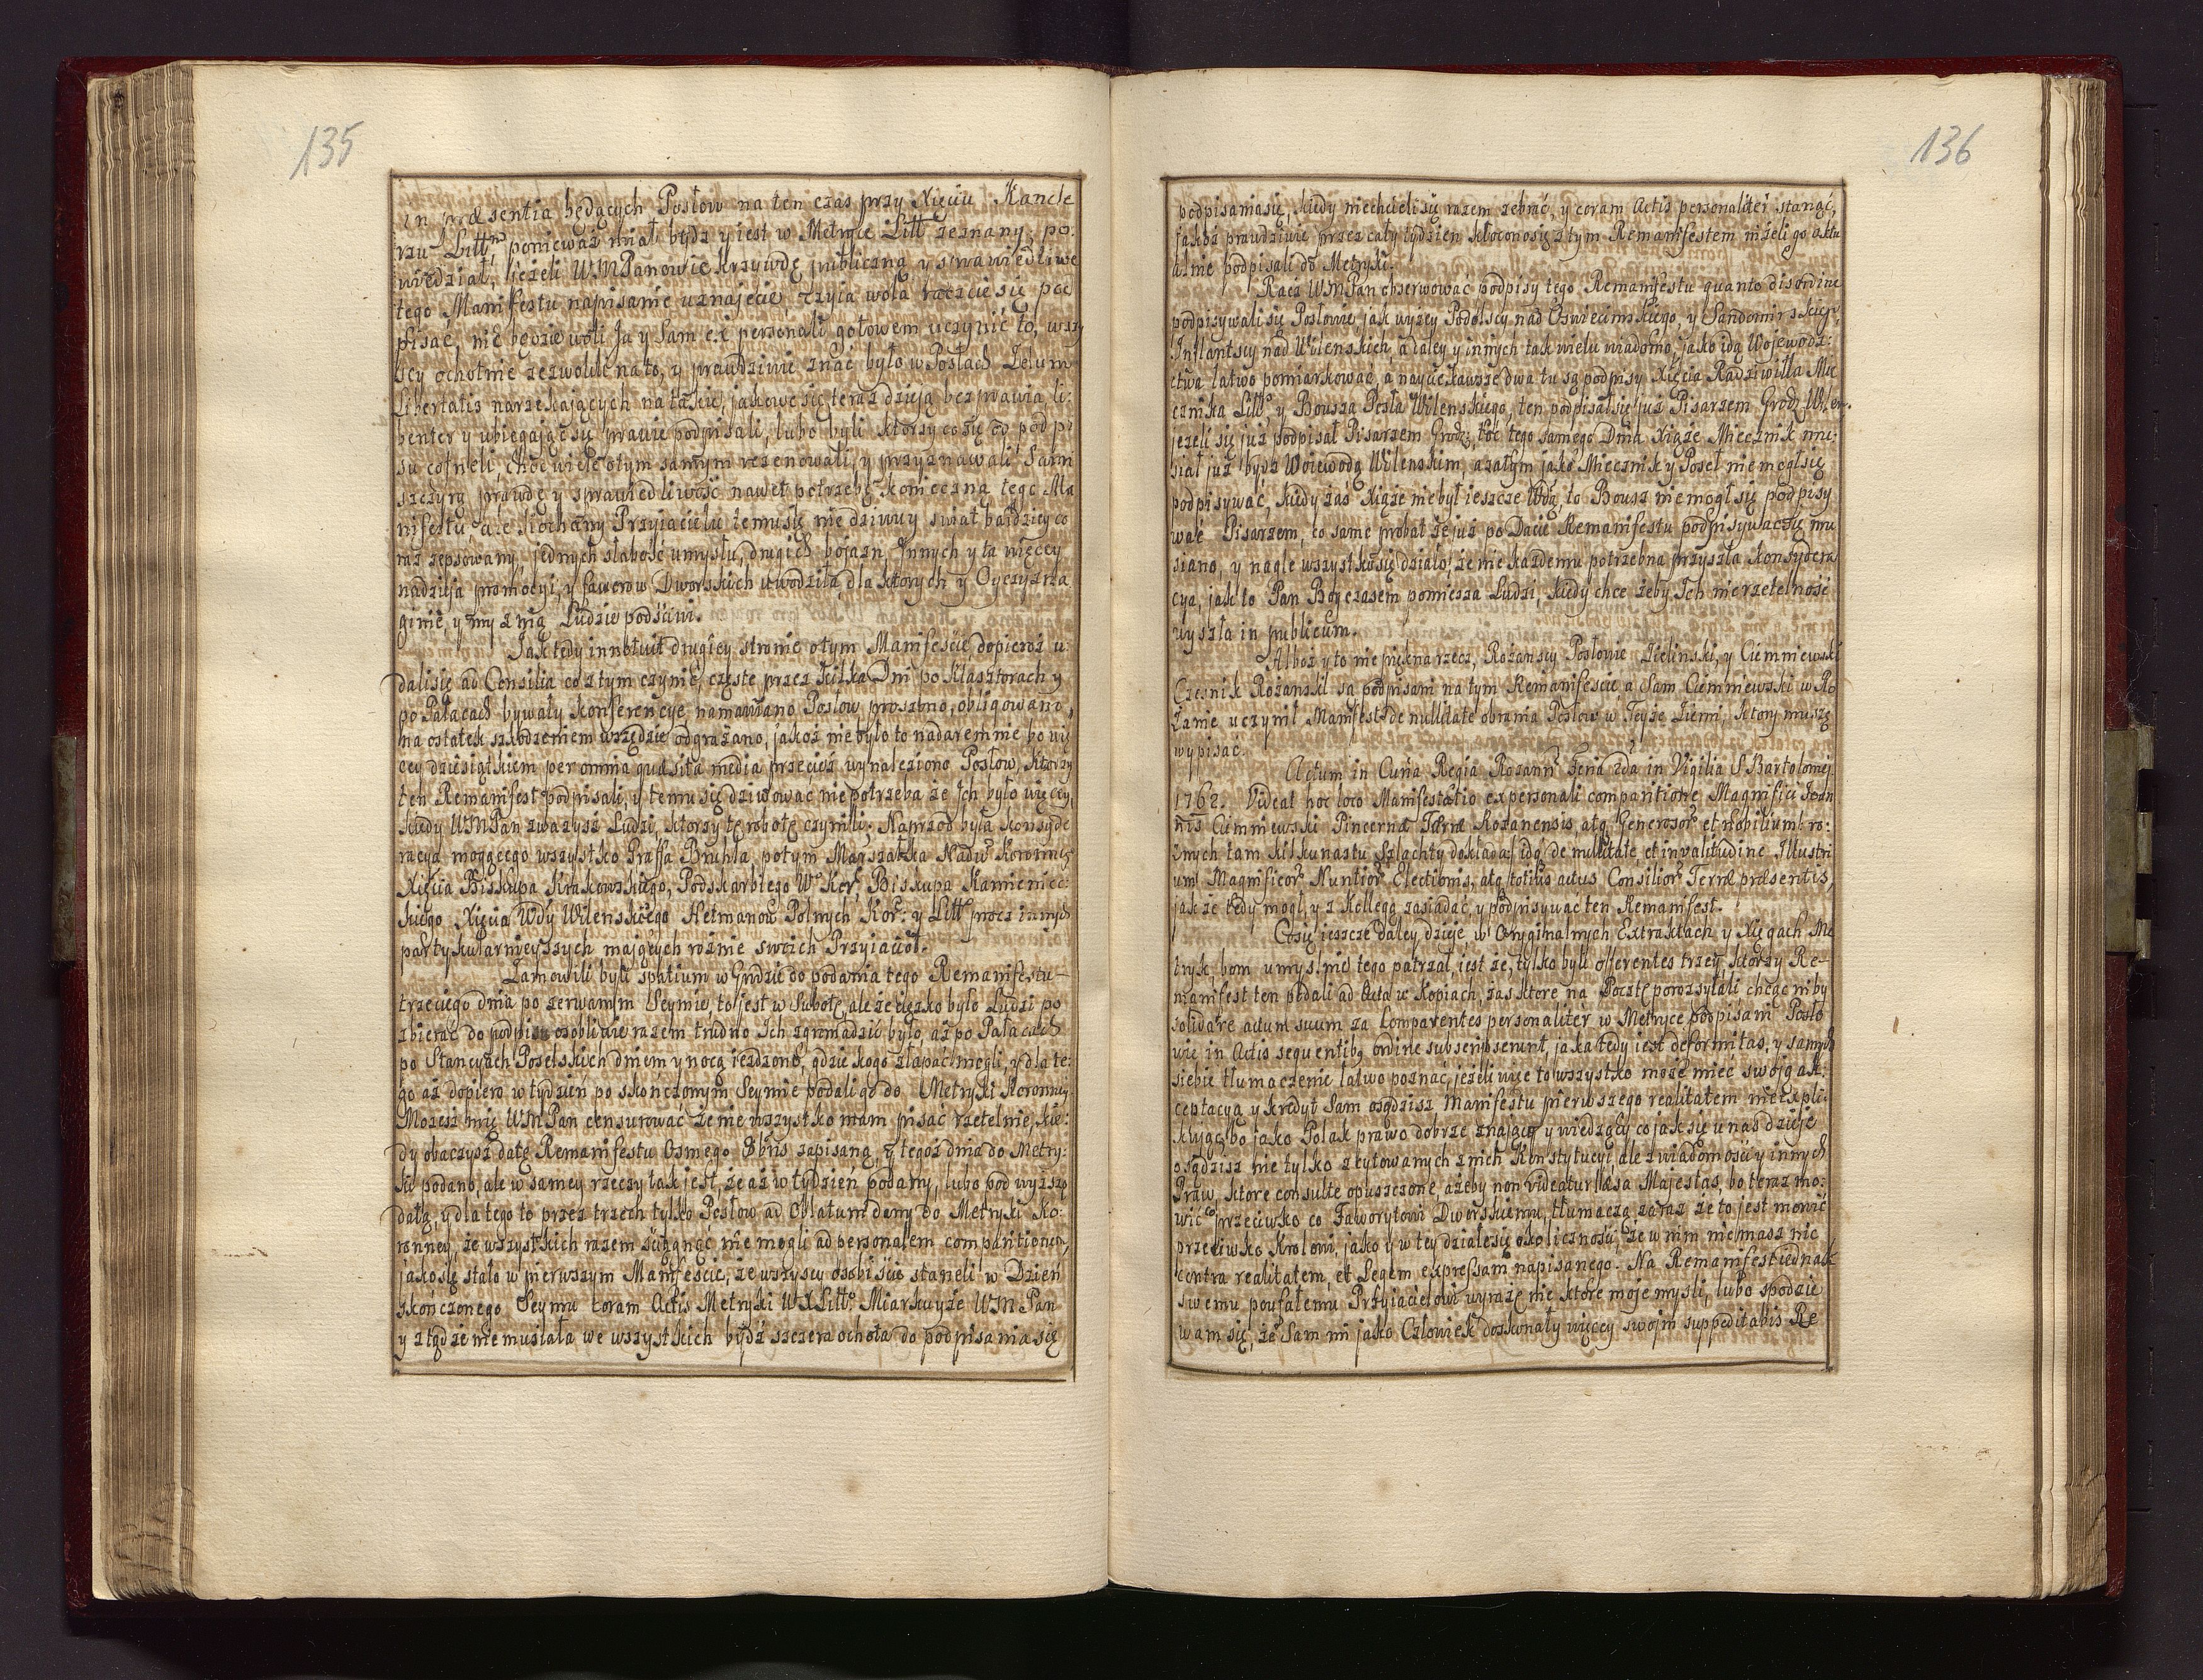 135
in præsentia będących Posłow na ten czas przy Xięciu Kancle
rzu Littm, ponieważ miał bydz y iest w Metryce Litt zeznany, po:
wiedział, jeżeli WMPanowie krzywdę publiczną y sprawiedliwe
tego Manifestu napisanie uznajecie, czyia wola raczcie się pod
pisać, nie będzie woli Ja y Sam ex personali gotowem uczynić to, wszy
scy ochotnie zezwolili na to, y prawdziwie znać było w Posłach Zelum
Libertatis narzekających na takie, jakowe się teraz dzieją bezprawia, li:
benter y ubiegając się prawie podpisali, lubo byli ktorzy co się od podpi
su cofneli, choc wiele o tym samym rezonowali, y przyznawali Sami
szczyrą prawdę y sprawiedliwość nawet potrzebę konieczną tego Ma
nifestu, ale Kochany Przyjacielu temu się nie dziwuy swiat bardziey co
raz zepsowany, jednych słabość umysłu, drugich bojazn, Innych y ta więcey
nadzieja promocyi, y faworow Dworskich uwodziła, dla ktorych y Oyczyzna
ginie, y my z nią Ludzie podściwi.
Jak tedy innotuit drugiey stronie o tym Manifescie, dopieroż u:
dali się ad Consilia co z tym czynić, częste przez kilka Dni po Klasztorach y
po Pałacach bywały konferencye, namawiano Posłow proszono, obligowano,
na ostatek szkodzeniem wszędzie odgrażano, jakoż nie było to nadaremnie bo wię
cey dziesiątkiem per omnia quæsita media przecież wynaleziono Posłow, ktorzy
ten Remanifest podpisali, y temu się dziwować nie potrzeba że Ich było więcey,
kiedy WMPan zważysz Ludzi, ktorzy tę robotę czynili; Naprzod była konsyde
racya mogącego wszystko Graffa Bruhla, potym Marszałka Nadwo Koronnego
Xięcia Biskupa Krakowskiego, Podskarbiego Wo Kor, Biskupa Kamieniec:
kiego Xięcia Wdy Wilenskiego Hetmanow Polnych Kor: y Litto procz innych
partykularnieyszych mających rożnie swoich Przyjacioł.
Zamowili byli spatium w Grodzie do podania tego Remanifestu
trzeciego dnia po zerwanym Seymie, to jest w Subotę, ale że ciężko było Ludzi po
zbierać do podpisu osobliwie razem trudno Ich zgromadzić było, aż po Pałacach
po Stancyach Poselskich dniem y nocą ieżdzono, gdzie kogo złapać mogli, y dla te:
go aż dopiero w tydzień po skończonym Seymie podali go do Metryki Koronney
Możesz mię WMPan censurować że nie wszystko mam pisać rzetelnie, kie:
dy obaczysz datę Remanifestu Osmego 8bris zapisaną, y tegoż dnia do Metry:
ki podano, ale w samey rzeczy tak jest, że aż w tydzień podany, lubo pod wyższą
datą, y dla tego to przez trzech tylko Posłow ad Oblatum dany do Metryki Ko:
ronney, że wszystkich razem sciągnąć nie mogli ad personalem comparitionem,
jako się stało w pierwszym Manifescie, ze wszyscy osobiscie staneli w Dzień
skończonego Seymu coram Actis Metryki WXLitto. Miarkuyże WMPan
y ztąd że nie musiała we wszystkich bydź szczera ochota do podpisania się
136
podpisania się, kiedy nie chcieli się razem zebrać, y coram Actis personaliter stanąć,
jakoż prawdziwie przez cały tydzień kłocono się z tym Remanifestem niżeli go aktu
alnie podpisali do Metryki.
Racz WMPan obserwować podpisy tego Remanifestu quanto disordine
podpisywali się Posłowie, jak wyżey Podolscy nad Oswiecimskiego, y Sandomirskiego,
Inflantscy nad Wilenskich, a daley y innych tak wielu wiadomo, jako idą Wojewodz:
ctwa łatwo pomiarkować, a nayciekawsze dwa tu są podpisy Xięcia Radziwiłła Mie
cznika Litto y Bousza Posła Wilenskiego, ten podpisał się już Pisarzem Grodz Wilen.
jezeli się już podpisał Pisarzem Grodz: toć tego samego Dnia Xiąże Miecznik mu:
siał już bydz Woiewodą Wilenskim, a zatym jako Miecznik y Poseł nie mogł się
podpisywać, kiedy zaś Xiąże nie był ieszcze Wdą, to Bousz nie mogł się podpisy
wać Pisarzem, co same probat że już po Dacie Remanifestu podpisywać się mu
siano, y nagle wszystko się działo, że nie każdemu potrzebna przyszła konsydera
cya, jak to Pan Bog czasem pomiesza Ludzi, kiedy chce żeby Ich nierzetelność
wyszła in publicum.
Alboż y to nie piękna rzecz, Rożanscy Posłowie Zielinski, y Ciemniewski
Czesnik Rożanski są podpisani na tym Remanifescie, a Sam Ciemniewski w Ro
żanie uczynił Manifest de nullitate obrania Posłow w Teyże Ziemi, ktory muszę
wypisać.
Actum in Curia Regia Rozann Feria 2da in Vigilia S Bartolomej
1762. Videat hoc loco Manifestatio ex personali comparitione Magnifici Joan
nis Ciemniewski Pincernæ Terræ Rozanensis, atq Generosor et Nobilium ro:
żnych tam kilkunastu Szlachty dokłada, idq de nullitate et invalitudine Illustri
um Magnificor Nuntior Electionis, atq totius actus Consilior Terræ præsentis,
jakże tedy mogł, y z Kollegą zasiadać, y podpisywać ten Remanifest.
Cosię ieszcze daley dzieje, w Oryginalnych Extraktach y Xięgach Me
tryk, bom umyslnie tego patrzał, iest że, tylko byli offerentes trzey ktorzy Re-
manifest ten podali ad Acta w Kopiach, zas ktore na Pocztę porozsyłali chcąc niby
solidare actum suum za Comparentes personaliter w Metryce podpisani Posło
wie in Actis sequentibq ordine subscripserunt, jaka tedy iest deformitas, y samych
siebie tłumaczenie łatwo poznać, jeżeli więc to wszystko może mieć swoją ak:
ceptacyą y kredyt Sam osądzisz Manifestu pierwszego realitatem nie expli:
kuję, bo jako Polak prawo dobrze znający y wiedzący co jak się u nas dzieje
osądzisz nie tylko z cytowanych z nich Konstytucyi, ale z wiadomości y innych
Praw, ktore consulte opuszczone, ażeby non videatur læsa Majestas, bo teraz mo:
wić co przeciwko co Faworytowi Dworskiemu, tłumaczą zaraz że to jest mowić
przeciwko Krolowi, jako y w tey działo się okoliczności, że w nim nie masz nic
contra realitatem, et Legem expressam napisanego. Na Remanifest iednak
swemu poufałemu Przyjacielowi wyrażę nie ktore moje mysli, lubo spodzie
wam się, że Sam mi jako Człowiek doskonały więcey swoim suppeditabis Re